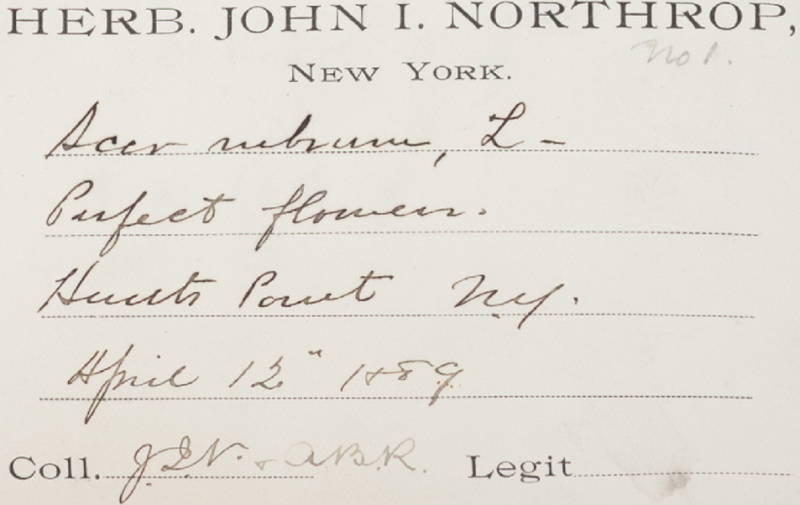 HERB. JOHN I. NORTHROP,
No 1.
NEW YORK.
Acer rubrum, L-
Perfect flowers.
Hunts Point N.Y.
April 12" 1889
Coll. J.I.N. + A.B.R. Legit